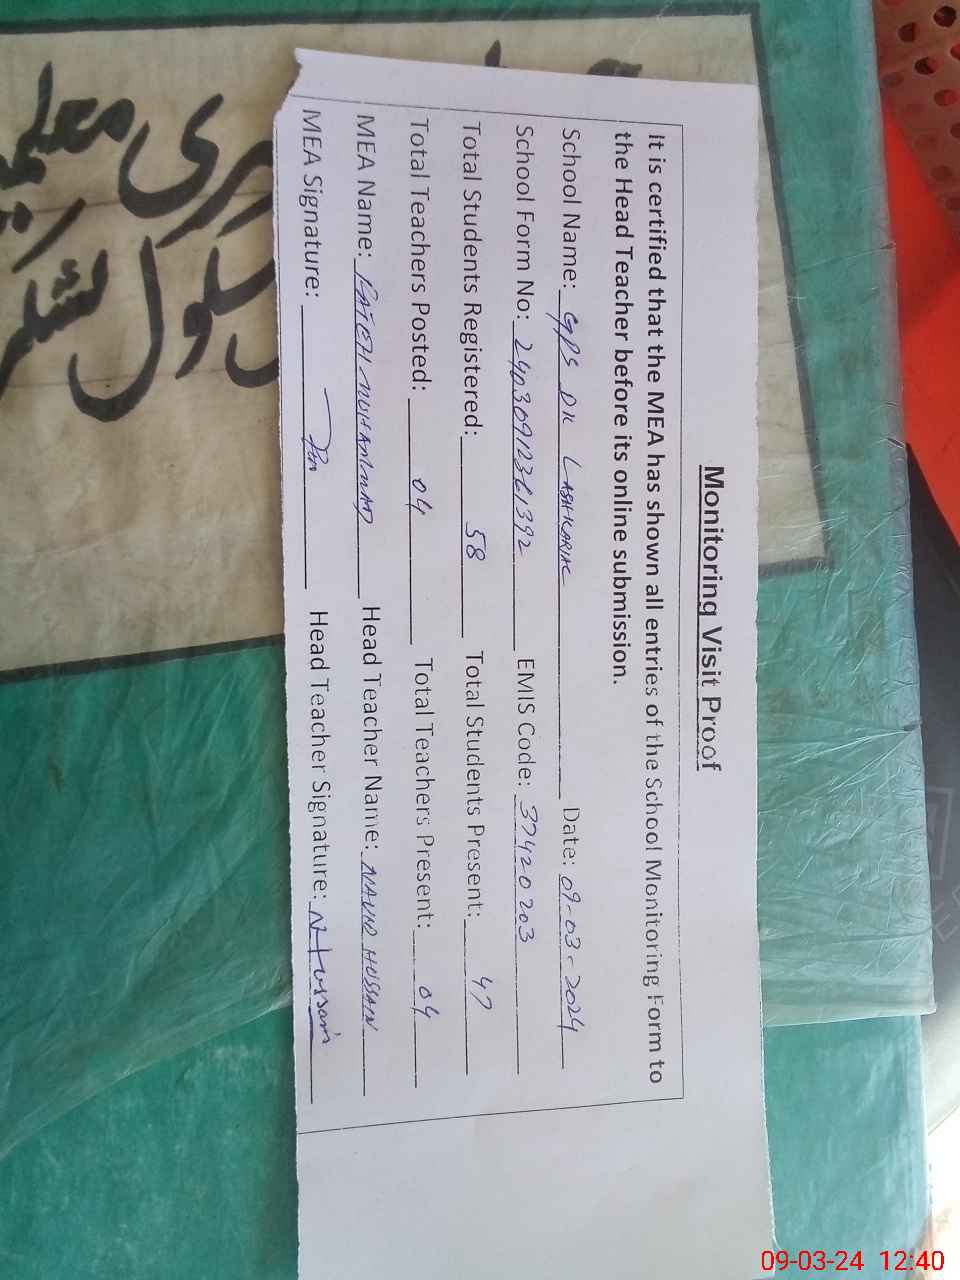 Monitoring Visit Proof
It is certified that the MEA has shown all entries of the School Monitoring Form to
the Head Teacher before its online submission.
School Name: GPS DK LASHKARIAL Date: 09-03-2024
School Form No: 24030912361392 EMIS Code: 37420203
Total Students Registered: 58 Total Students Present: 47
Total Teachers Posted: 04 Total Teachers Present: 04
MEA Name: FATEH MUHAMMAD Head Teacher Name: NAVID HUSSAIN
MEA Signature: Head Teacher Signature: N Hussain
09-03-24 12:40